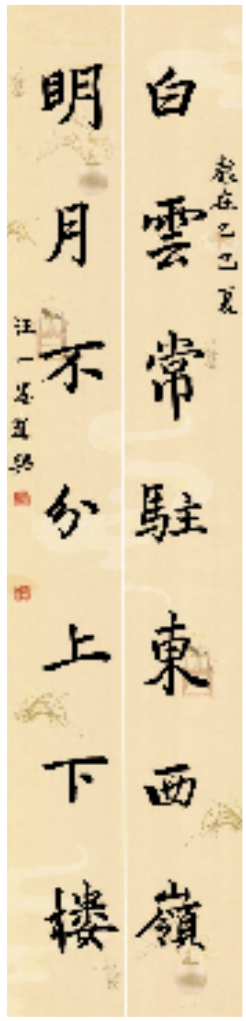 歲在己巳夏
白雲常駐東西嶺
明月不分上下楼
汪一